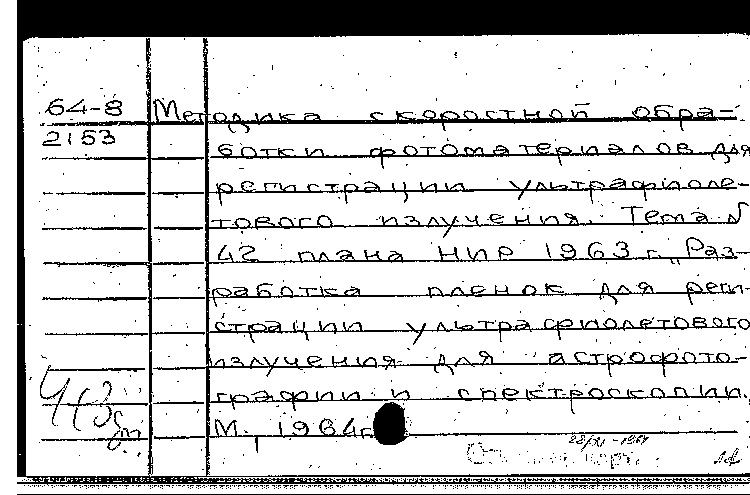 64-8 Методика скоростной обра-
2153
ботки фотоматериалов для
регистрации ультрафиоле-
тового излучения. Тема N
42 плана НИР 1963 г. „Раз-
работка пленок для реги-
страции ультрафиолетового
излучения для астрофото-
графии и спектроскопии.
М., 1964г.